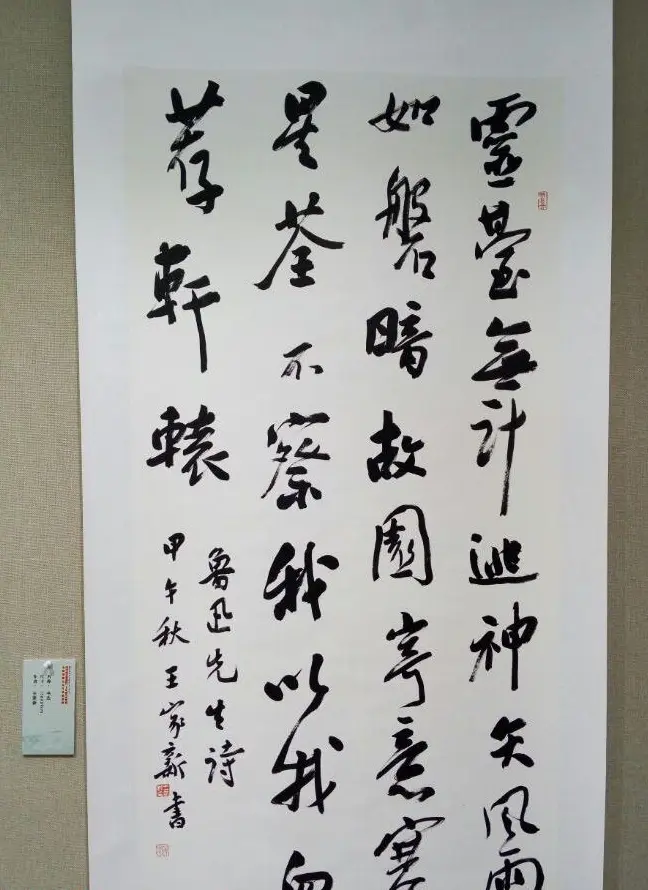 靈臺無計逃神矢風雨
如磐暗故園寄意寒
星荃不察我以我血
荐軒轅
魯迅先生詩
甲午秋王家新書